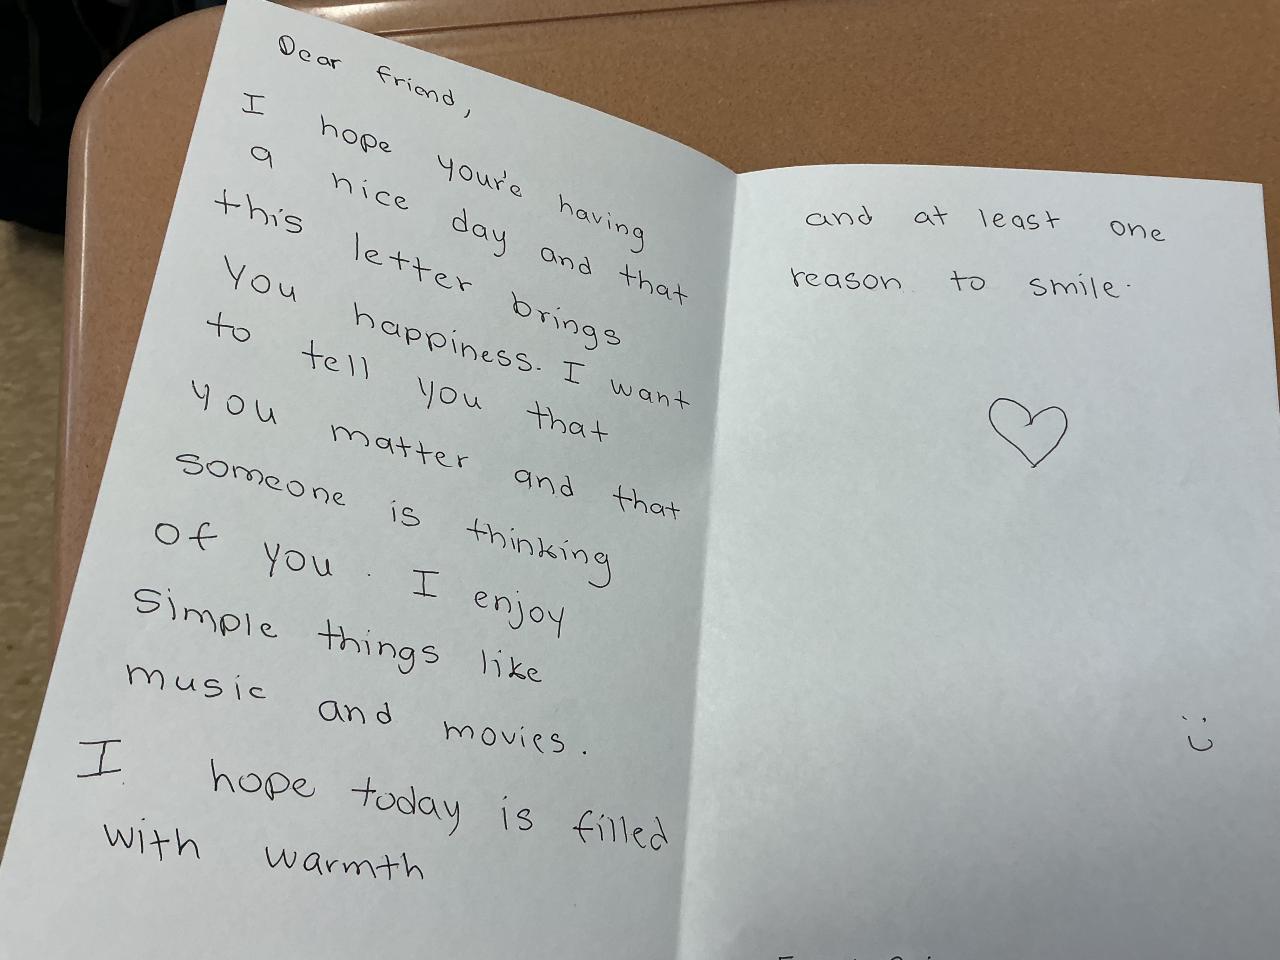 Dear friend,
I hope your'e having
a nice day and that
this letter brings
you happiness. I want
to tell you that
you matter and that
someone is thinking
of you. I enjoy
simple things like
music and movies.
I hope today is filled
with warmth
and at least one
reason to smile.